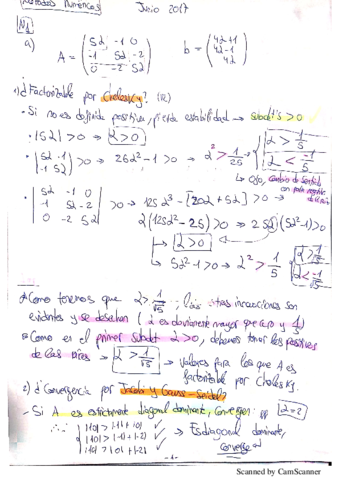 Métodos Numéricos Junio 2017
N1
a) A = (5α -1 0 / -1 5α -2 / 0 -2 5α) b = (4α+1 / 4α-1 / 4α)
1) ¿Factorizable por Cholesky? (R)
- Si no es definida positiva, pierde estabilidad → subdet's > 0
· |5α| > 0 ⇒ α > 0
· |5α -1 / -1 5α| > 0 ⇒ 25α² - 1 > 0 ⇒ α² > 1/25 ⇒ α > 1/5
α < -1/5
↳ Ojo, cambio de sentido
· |5α -1 0 / -1 5α -2 / 0 -2 5α| > 0 ⇒ 125α³ - [20α + 5α] > 0 ⇒
α(125α² - 25) > 0 ⇒ 25α(5α² - 1) > 0
↳ α > 0
↳ 5α² - 1 > 0 ⇒ α² > 1/5 α > 1/√5
α < -1/√5
* Como tenemos que α > 1/√5, las otras inecuaciones son
evidentes y se desechan (α es obviamente mayor que cero y 1/5)
* Como es el primer subdet α > 0, debemos tomar los positivos
de los pares ⇒ α > 1/√5 → valores para los que A es
factorizable por Cholesky.
2) ¿Convergencia por Jacobi y Gauss-Seidel?
- Si A es estrictamente diagonal dominante, converge: α = 2
∴ |10| > |-1| + |0| ✓
|10| > |-1| + |-2| ✓ → Es diagonal dominante,
|10| > |0| + |-2| ✓ converge
-1-
Scanned by CamScanner